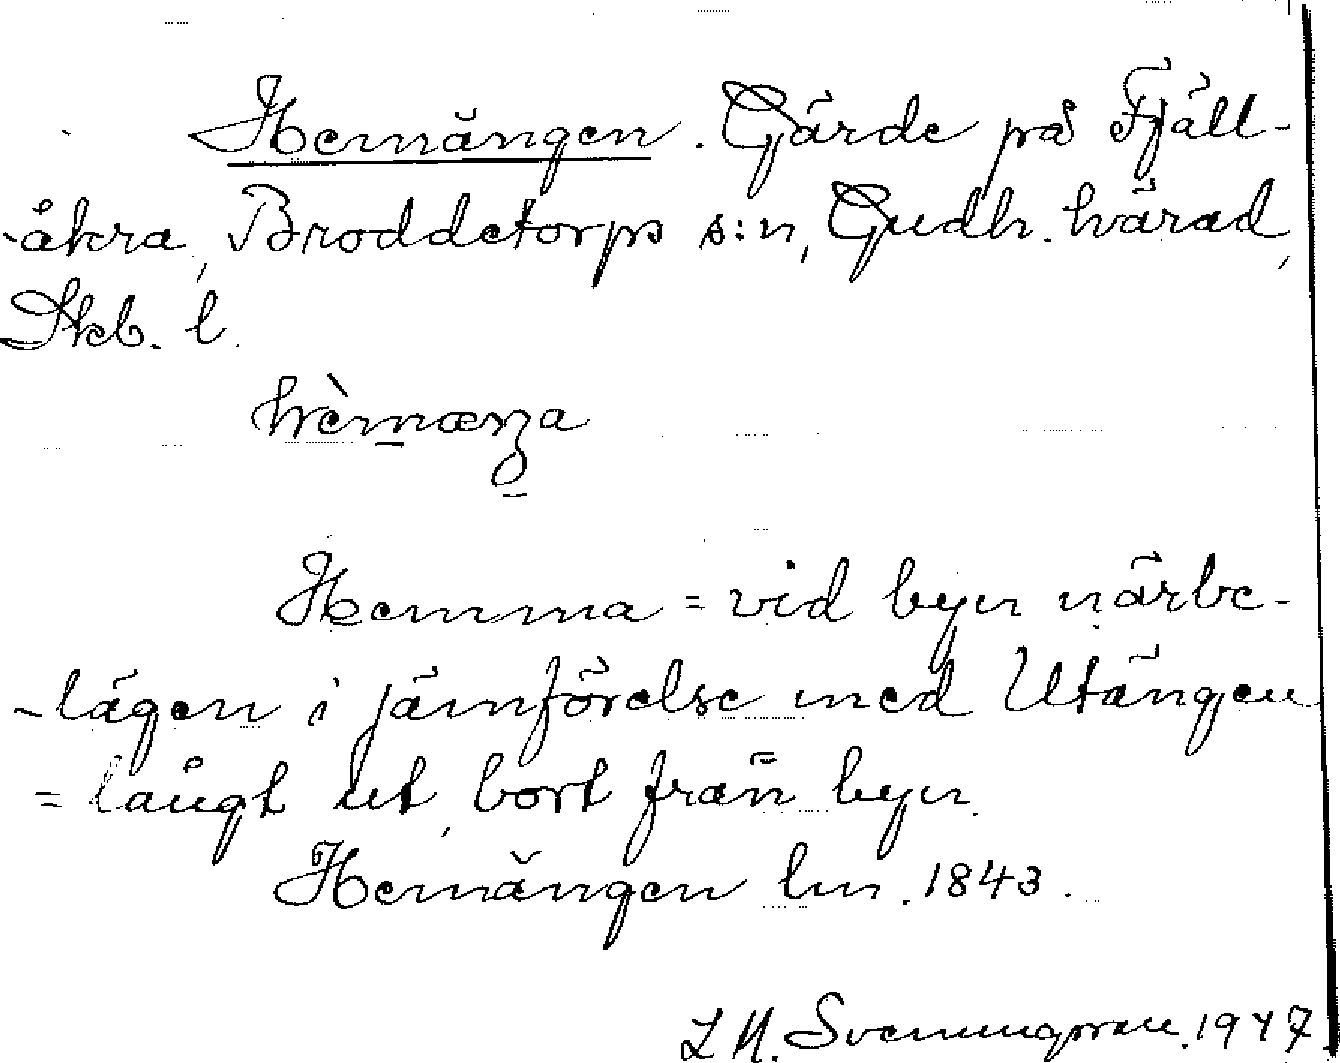 Hemängen. Gärde på Fjäll-
-åkra, Broddetorps s:n, Gudh. härad,
Skb. l.
hèmæŋa
Hemma = vid byn närbe-
-lägen i jämförelse med Utängen
= långt ut, bort från byn.
Hemängen lm. 1843.
Svenungsson. 1947